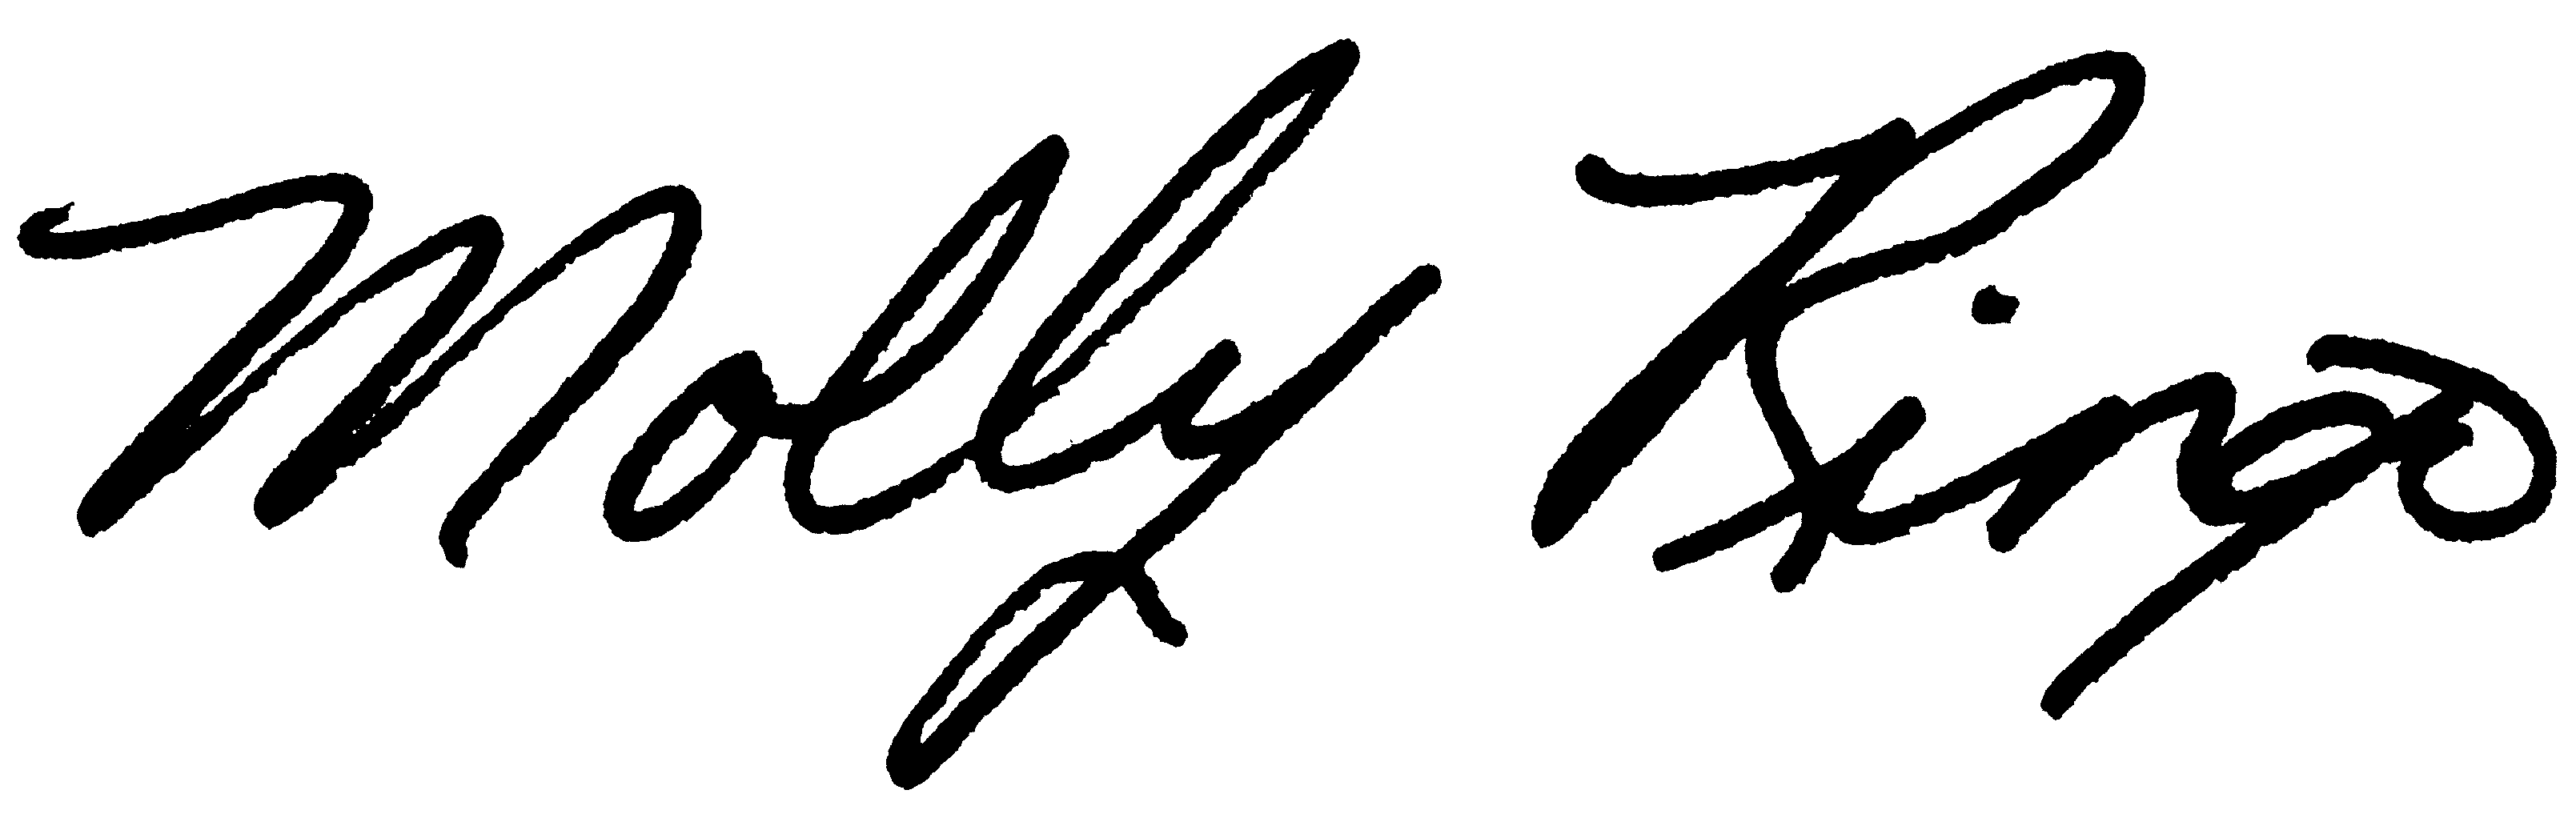 Molly Ringo